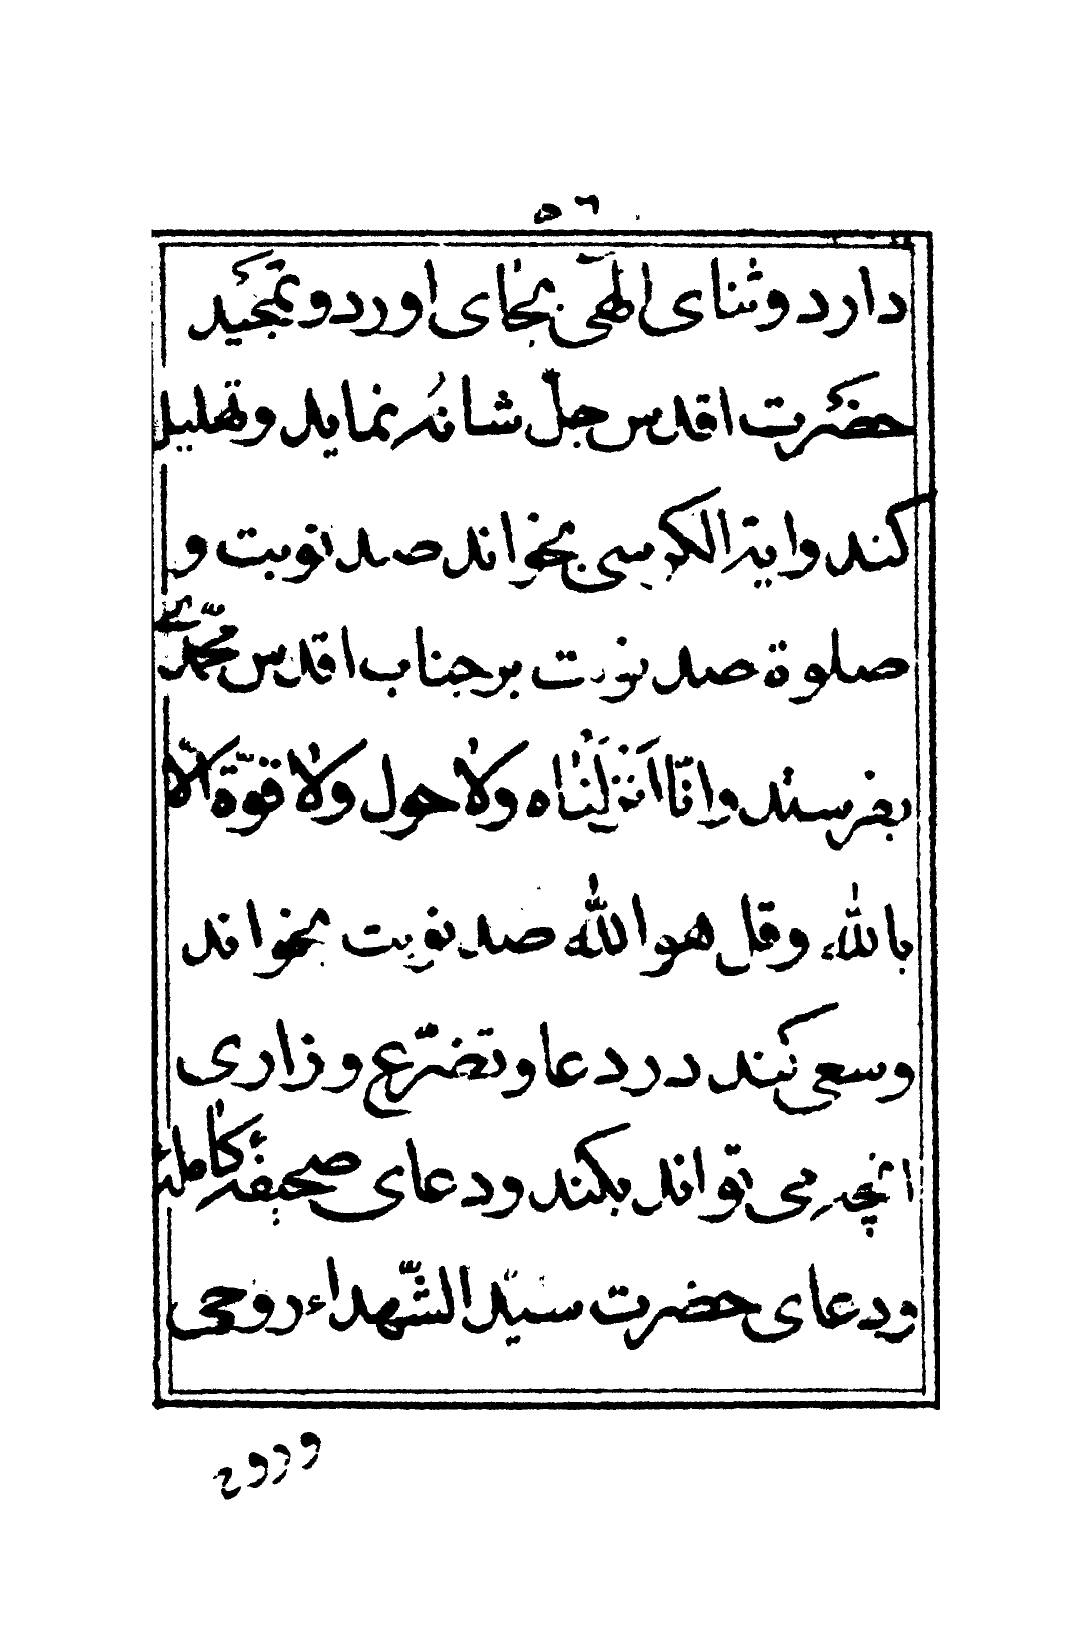 ٥٦
دارد وثنای الهّی بجٰای اورد و تمجید
حضرت اقدس جلّ شانه نماید و تهلیل
کند وایة الکرسی بخواند صد نوبت و
صلوة صد نوبت بر جناب اقدس محمّد ﷺ
بفرستد وانّا انزلنٰاه ولاٰحول ولاٰ قوّة الاّ
باللّٰه وقل هو اللّٰه صد نوبت بخواند
وسعی کند در دعا و تضرّع و زاری
انچه می تواند بکند ودعای صحیفه کاٰمله
ودعای حضرت سیّد الشّهداء روحی
وروح